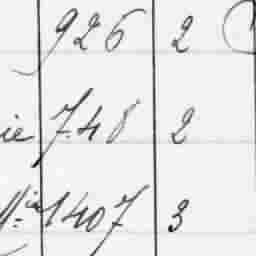 926 2
ie 748 2
M.in 1407 3